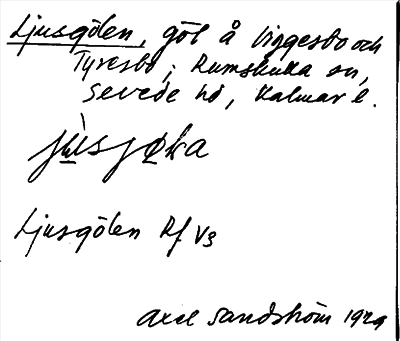 Ljusgölen, göl å Viggesbo och
Tyresbo, Rumskulla sn,
Sevede hd, Kalmar l.
jùsjøka
Ljusgölen Rf V3
Axel Sandström 1929